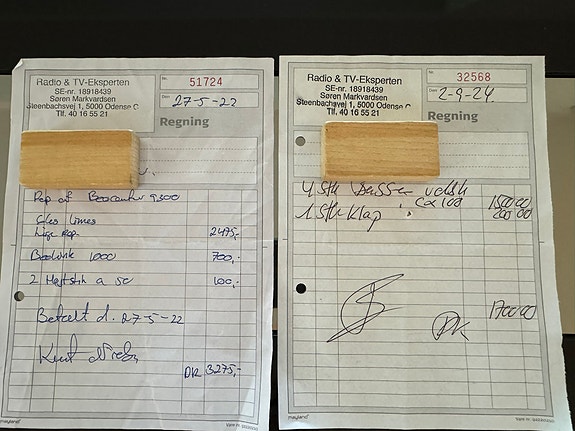 Radio & TV-Eksperten
SE-nr. 18918439
Søren Markvardsen
Steenbachsvej 1, 5000 Odense C
Tlf. 40 16 55 21
Nr.
51724
Dato
27-5-22
Regning
Rep af Beocenter 9300
Glas limes
lige Rep. 2475,-
Beolink 1000 700,-
2 Højtstik a 50 100,-
Betalt d. 27-5-22
DK 3275,-
mayland
Radio & TV-Eksperten
SE-nr. 18918439
Søren Markvardsen
Steenbachsvej 1, 5000 Odense C
Tlf. 40 16 55 21
Nr.
32568
Dato
2-9-24
Regning
4 Stk Basser udsk
CX100 1500 00
1 Stk Klap 200 00
1700 00
DK
mayland